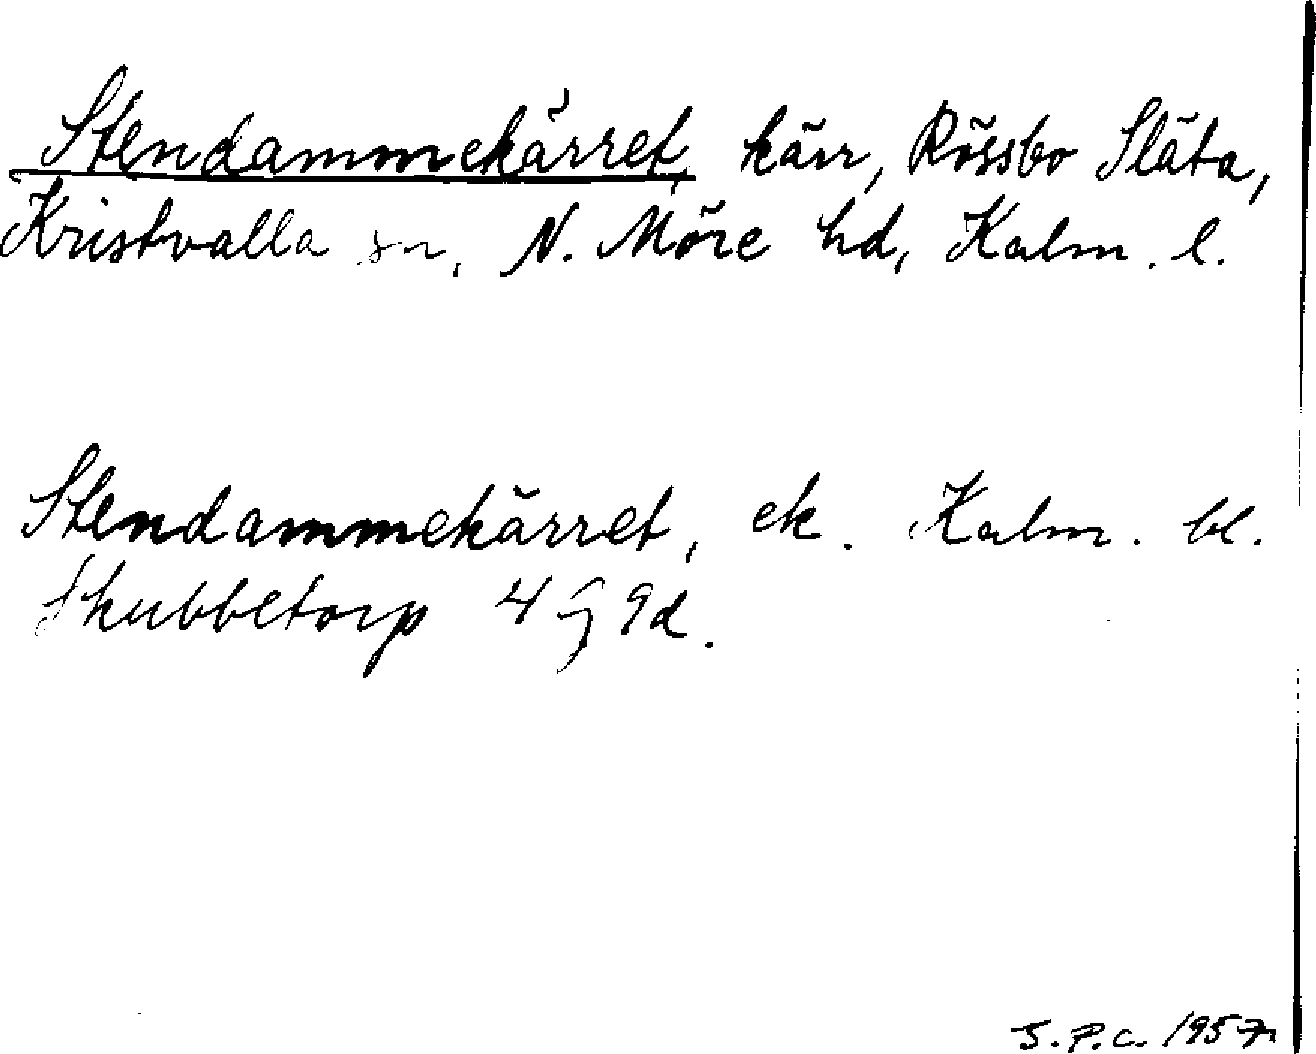 Stendammekärret, kärr, Rössbo Släta,
Kristvalla sn, N. Möre hd, Kalm. l.
Stendammekärret, ek. Kalm. bl.
Skubbetorp 4 G 9d.
S.P.C. 1957